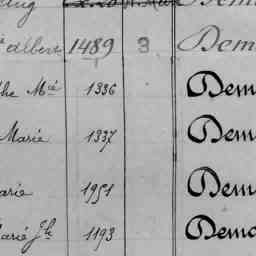 Albert 1489 3 Dem
the Mie 1336 Dem
Marie 1337 Dem
arie 1951 Dem
Marie Jh 1193 Demo